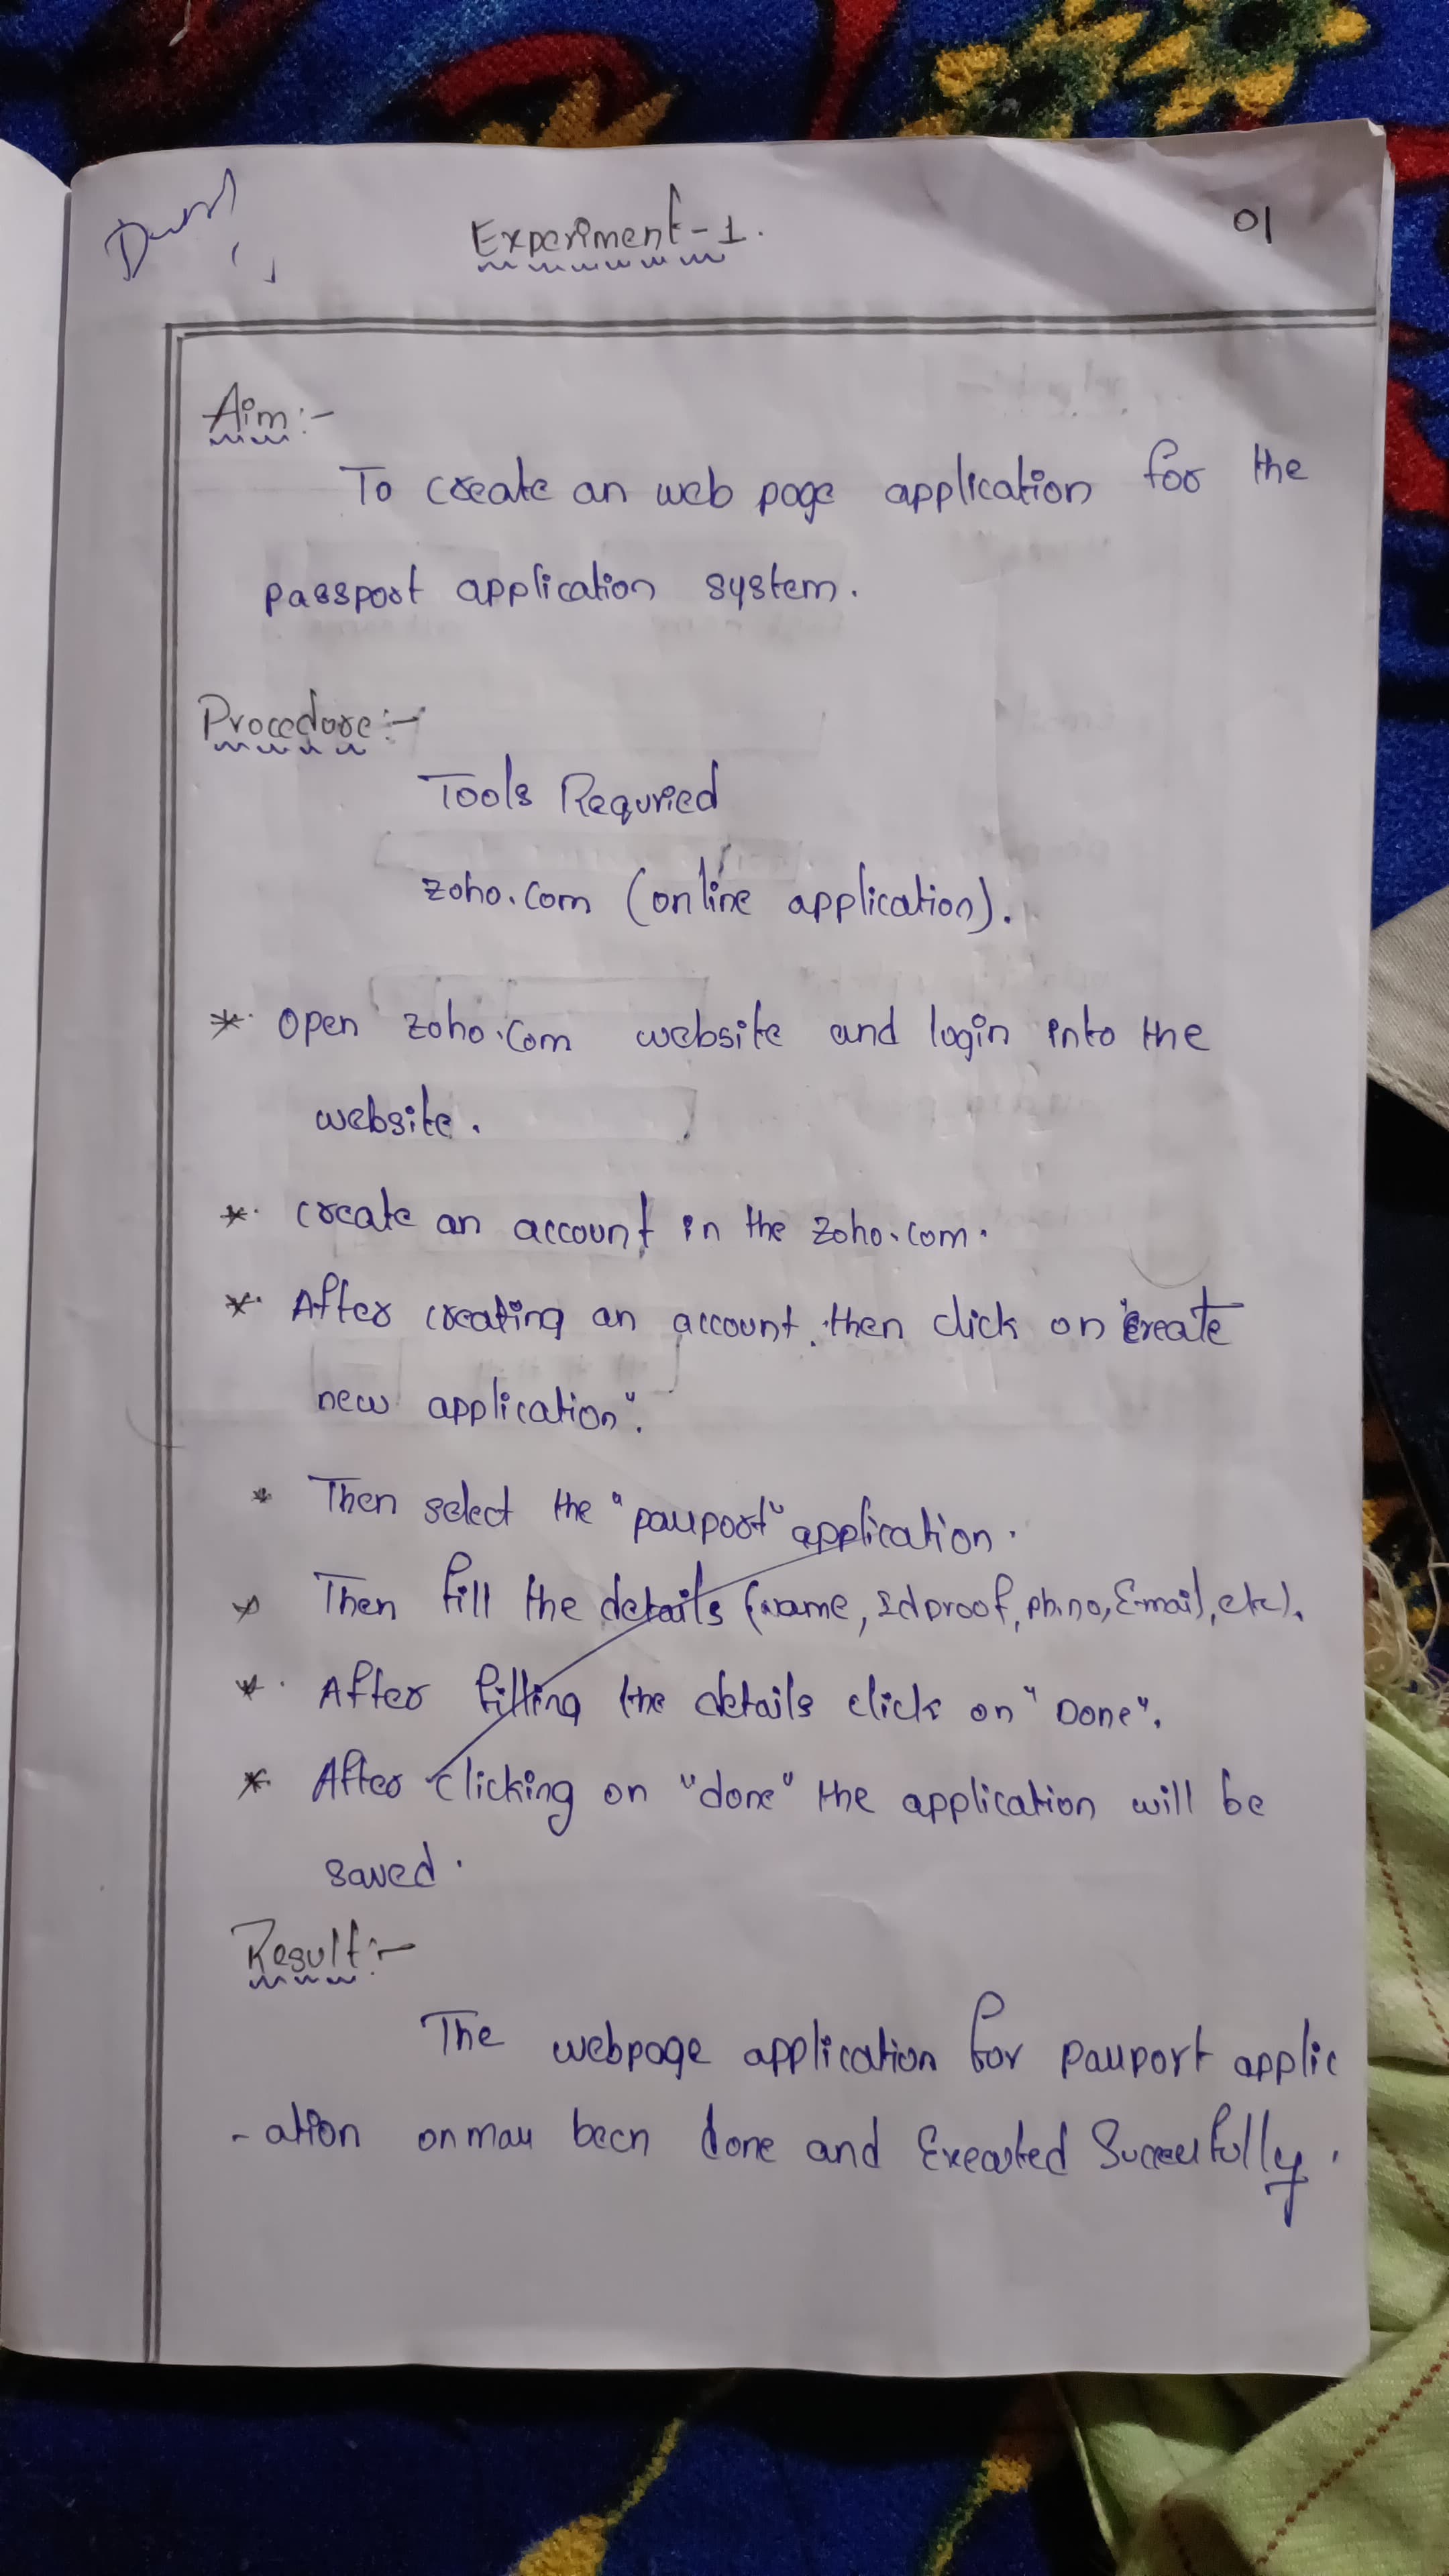 Experiment-1.
01
Aim:-
To create an web page application for the
passport application system.
Procedure:-
Tools Requried
zoho.com (online application).
* Open zoho.com website and login into the
website.
* create an account in the zoho.com.
* After creating an account, then click on "create
new application".
* Then select the "passport" application.
* Then fill the details (name, Idproof, ph.no, E-mail, etc).
* After filling the details click on "Done".
* After clicking on "done" the application will be
saved.
Result:-
The webpage application for passport applic
-ation been done and Executed Successfully.